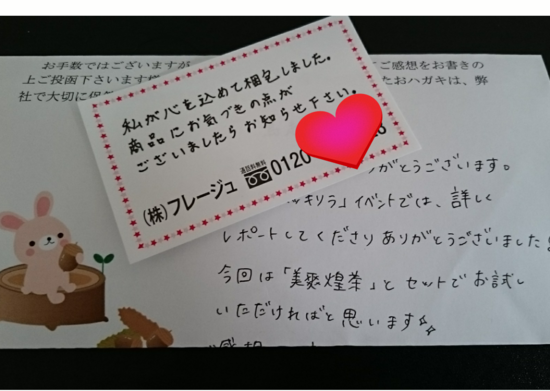 お手数ではございますが
ご感想をお書きの
上ご投函下さいます
たおハガキは、弊
社で大切に保
私が心を込めて梱包しました。
商品にお気づきの点が
ございましたらお知らせ下さい。
(株)フレージュ
通話料無料
0120
がとうございます。
キリラ」イベントでは、詳しく
レポートしてくださりありがとうございました!
今回は「美爽煌茶」とセットでお試し
いただければと思います